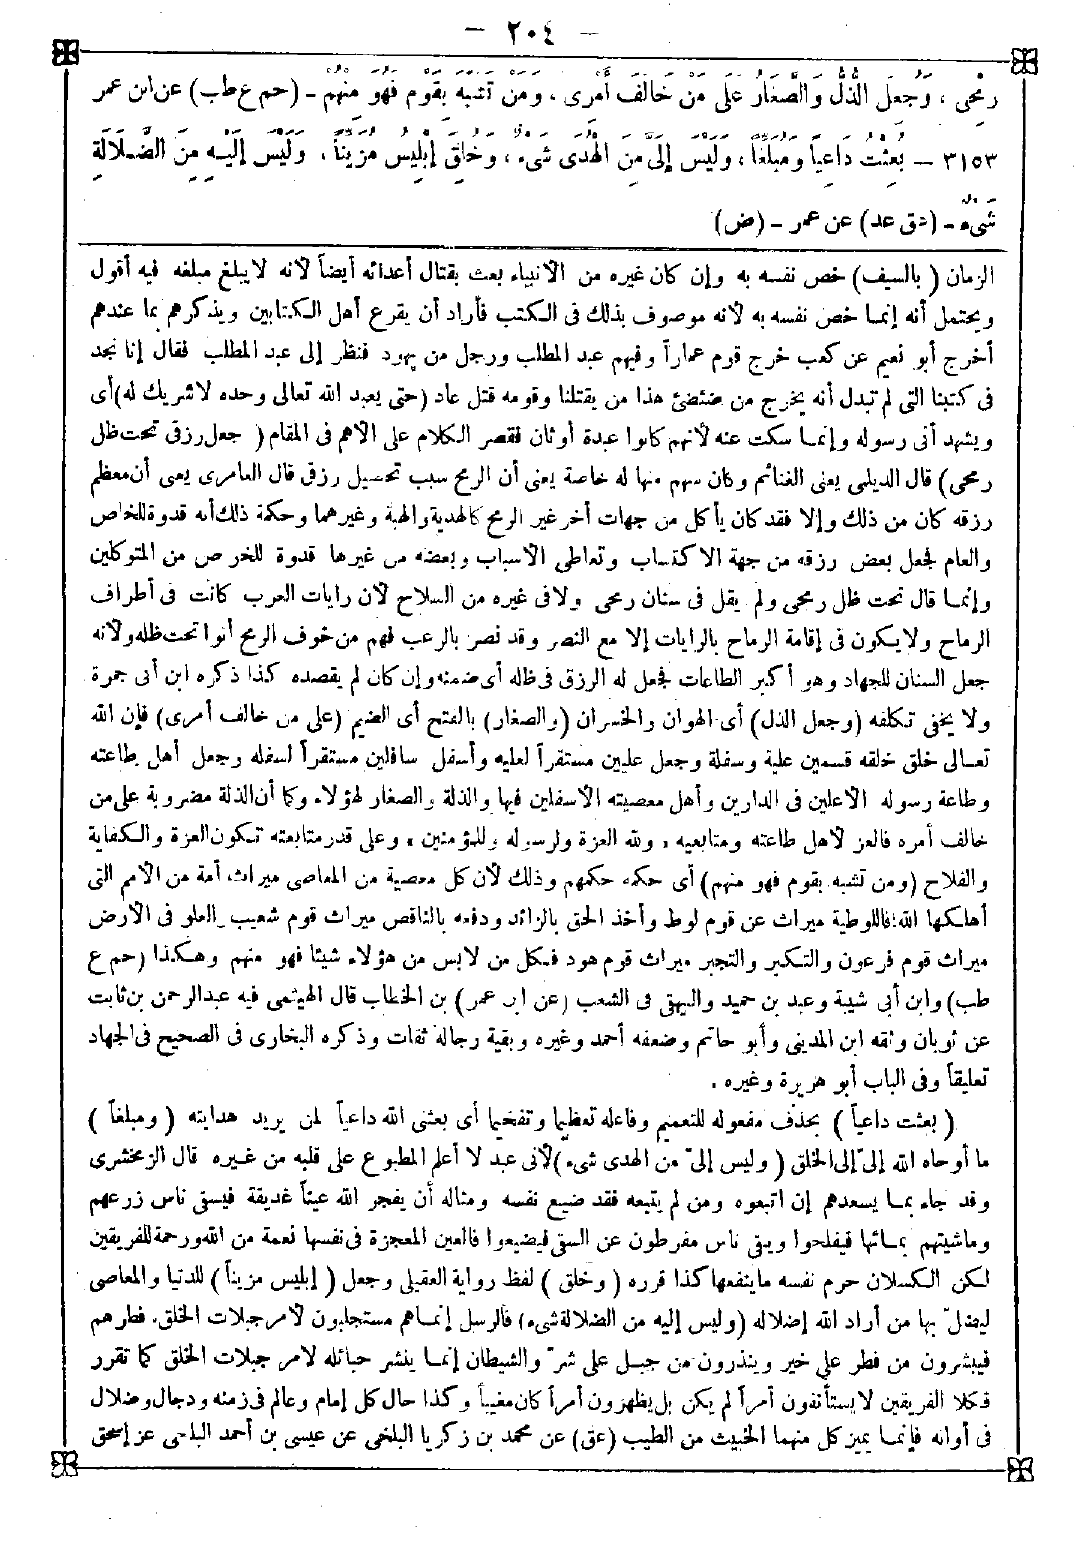 - ٢٠٤ -
رُمْحِى ، وَجُعِلَ الذُّلُّ وَالصَّغَارُ عَلَى مَنْ خَالَفَ أَمْرِى ، وَمَنْ تَشَبَّهَ بِقَوْمٍ فَهُوَ مِنْهُمْ - (حم ع طب) عن ابن عمر
٣١٥٣ - بُعِثْتُ دَاعِيًا وَمُبَلِّغًا ، وَلَيْسَ إِلَىَّ مِنَ الْهُدَى شَىْءٌ ، وَخُلِقَ إِبْلِيسُ مُزَيِّنًا ، وَلَيْسَ إِلَيْهِ مِنَ الضَّلَالَةِ
شَىْءٌ - (عق عد) عن عمر - (ض)
الزمان ( بالسيف) خص نفسه به وإن كان غيره من الأنبياء بعث بقتال أعدائه أيضاً لأنه لا يبلغ مبلغه فيه أقول
ويحتمل أنه إنما خص نفسه به لأنه موصوف بذلك فى الكتب فأراد أن يقرع أهل الكتابين ويذكرهم بما عندهم
أخرج أبو نعيم عن كعب خرج قوم عماراً وفيهم عبد المطلب ورجل من يهود فنظر إلى عبد المطلب فقال إنا نجد
فى كتبنا التى لم تبدل أنه يخرج من ضئضئ هذا من يقتلنا وقومه قتل عاد (حتى يعبد الله تعالى وحده لا شريك له) أى
ويشهد أنى رسوله وإنما سكت عنه لأنهم كانوا عبدة أوثان فقصر الكلام على الأهم فى المقام ( جعل رزقى تحت ظل
رمحى) قال الديلمى يعنى الغنائم وكان سهم منها له خاصة يعنى أن الرمح سبب تحصيل رزقى قال العامرى يعنى أن معظم
رزقه كان من ذلك وإلا فقد كان يأكل من جهات أخر غير الرمح كالهدية والهبة وغيرهما وحكمة ذلك أنه قدوة للخاص
والعام فجعل بعض رزقه من جهة الاكتساب وتعاطى الأسباب وبعضه من غيرها قدوة للخواص من المتوكلين
وإنما قال تحت ظل رمحى ولم يقل فى سنان رمحى ولا فى غيره من السلاح لأن رايات العرب كانت فى أطراف
الرماح ولا يكون فى إقامة الرماح بالرايات إلا مع النصر وقد نصر بالرعب فهم من خوف الرمح أتوا تحت ظله ولأنه
جعل السنان للجهاد وهو أكبر الطاعات فجعل له الرزق فى ظله أى ضمنه وإن كان لم يقصده كذا ذكره ابن أبى جمرة
ولا يخفى تكلفه (وجعل الذل) أى الهوان والخسران (والصغار) بالفتح أى الضيم (على من خالف أمرى) فإن الله
تعالى خلق خلقه قسمين علية وسفلة وجعل عليين مستقراً لعليه وأسفل سافلين مستقراً لسفله وجعل أهل طاعته
وطاعة رسوله الأعلين فى الدارين وأهل معصيته الأسفلين فيها والذلة والصغار لهؤلاء وكما أن الذلة مضروبة على من
خالف أمره فالعز لأهل طاعته ومتابعيه ، ولله العزة ولرسوله وللمؤمنين ، وعلى قدر متابعته تكون العزة والكفاية
والفلاح (ومن تشبه بقوم فهو منهم) أى حكمه حكمهم وذلك لأن كل معصية من المعاصى ميراث أمة من الأمم التى
أهلكها الله فاللوطية ميراث عن قوم لوط وأخذ الحق بالزائد ودفعه بالناقص ميراث قوم شعيب والعلو فى الأرض
ميراث قوم فرعون والتكبر والتجبر ميراث قوم هود فكل من لابس من هؤلاء شيئا فهو منهم وهكذا (حم ع
طب) وابن أبى شيبة وعبد بن حميد والبيهقى فى الشعب (عن ابن عمر) بن الخطاب قال الهيثمى فيه عبد الرحمن بن ثابت
عن ثوبان وثقه ابن المدينى وأبو حاتم وضعفه أحمد وغيره وبقية رجاله ثقات وذكره البخارى فى الصحيح فى الجهاد
تعليقاً وفى الباب أبو هريرة وغيره .
( بعثت داعياً ) بحذف مفعوله للتعميم وفاعله تعظيما وتفخيما أى بعثنى الله داعياً لمن يريد هدايته ( ومبلغاً )
ما أوحاه الله إلىّ إلى الخلق ( وليس إلىّ من الهدى شىء )لأنى عبد لا أعلم المطبوع على قلبه من غيره قال الزمخشرى
وقد جاء بما يسعدهم إن اتبعوه ومن لم يتبعه فقد ضيع نفسه ومثاله أن يفجر الله عيناً غديقة فيسقى ناس زرعهم
وماشيتهم بمائها فيفلحوا ويبقى ناس مفرطون عن السقى فيضيعوا فالعين المعجزة فى نفسها نعمة من الله ورحمة للفريقين
لكن الكسلان حرم نفسه ما ينفعها كذا قرره ( وخلق ) لفظ رواية العقيلى وجعل ( إبليس مزيناً ) للدنيا والمعاصى
ليضلّ بها من أراد الله إضلاله (وليس إليه من الضلالة شىء) فالرسل إنما هم مستجلبون لأمر جبلات الخلق، فطرهم
فيبشرون من فطر على خير وينذرون من جبل على شرّ والشيطان إنما ينشر حبائله لأمر جبلات الخلق كما تقرر
فكلا الفريقين لا يستأنفون أمراً لم يكن بل يظهرون أمراً كان مغيباً وكذا حال كل إمام وعالم فى زمنه ودجال وضلال
فى أوانه فإنما يميز كل منهما الخبيث من الطيب (عق) عن محمد بن زكريا البلخى عن عيسى بن أحمد البلخى عن إسحق